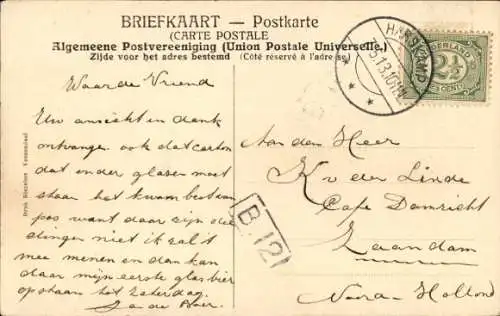 BRIEFKAART — Postkarte
(CARTE POSTALE
Algemeene Postvereeniging (Union Postale Universelle.)
Zijde voor het adres bestemd (Côté réservé à l'adresse)
HARSKAMP
NEDERLAND
2½
CENT
Waarde Vriend
Uw ansicht in dank
ontvangen ook dat carton
dat onder glasen moet
staan het kwam best van
pas want daar zijn die
dingen niet ik zal t
mee nemen en dan kan
daar mijn eerste glas bier
op staan tot Zaterdag.
Aan den Heer
K v der Linde
Cafe Damzicht
Zaandam
Noord-Holland
B 12